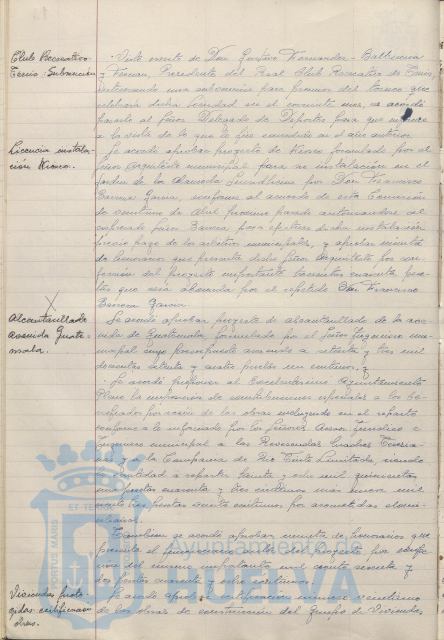 Club Recreativo
Tenis: Subvención
Visto escrito de Don Gustavo Fernandez-Balbuena
y Presidente del Real Club Recreativo de Tenis
interesando una subvención para premios del torneo que
celebrará dicha Sociedad en el corriente mes, se acordó
pasarlo al Señor Delegado de Deportes para que informe
a la vista de lo que se haya concedido en el año anterior.
Licencia instala-
ción Kiosco.
Se acordó aprobar proyecto de Kiosco formulado por el
Señor Arquitecto municipal para su instalación en el
Jardín de la Alameda Sundheim por Don Francisco
Barrera Garcia, conforme al acuerdo de esta Comisión
de veintiuno de Abril proximo pasado autorizandose al
expresado Señor Barrera para efectuar dicha instalación
previo pago de los arbitrios municipales, y aprobar minuta
de honorarios que presenta dicho Señor Arquitecto por con-
fección del proyecto importante trescientas cincuenta pese-
tas que será abonada por el repetido Don Francisco
Barrera Garcia.
Alcantarillado
Avenida Guate-
mala.
Se acordó aprobar proyecto de alcantarillado de la ave-
nida de Guatemala, formulado por el Señor Ingeniero mu-
nicipal cuyo presupuesto asciende a setenta y tres mil
doscientas setenta y cuatro pesetas un centimo.
Se acordó proponer al Excelentisimo Ayuntamiento
Pleno la imposición de contribuciones especiales a los be-
neficiados por razón de las obras incluyendo en el reparto
conforme a lo informado por los Señores Asesor Juridico e
Ingeniero municipal a los Reverendos Madres Teresia-
nas y a la Compañia de Rio Tinto Limitada, siendo
la cantidad a repartir treinta y ocho mil quinientas
pesetas cuarenta y tres centimos mas nueve mil
pesetas treinta centimos por acometidas domici-
liarias.
Tambien se acordó aprobar minuta de honorarios que
presenta el funcionario autor del proyecto por confec-
ción del mismo importante mil ciento sesenta y
dos pesetas cuarenta y ocho centimos.
Viviendas prote-
gidas certificacion
obras.
Se acordó aprobar certificación numero veintiuno
de las obras de construcción del Grupo de Viviendas
Ayuntamiento de
HUELVA
PORTUS MARIS ET TERRAE